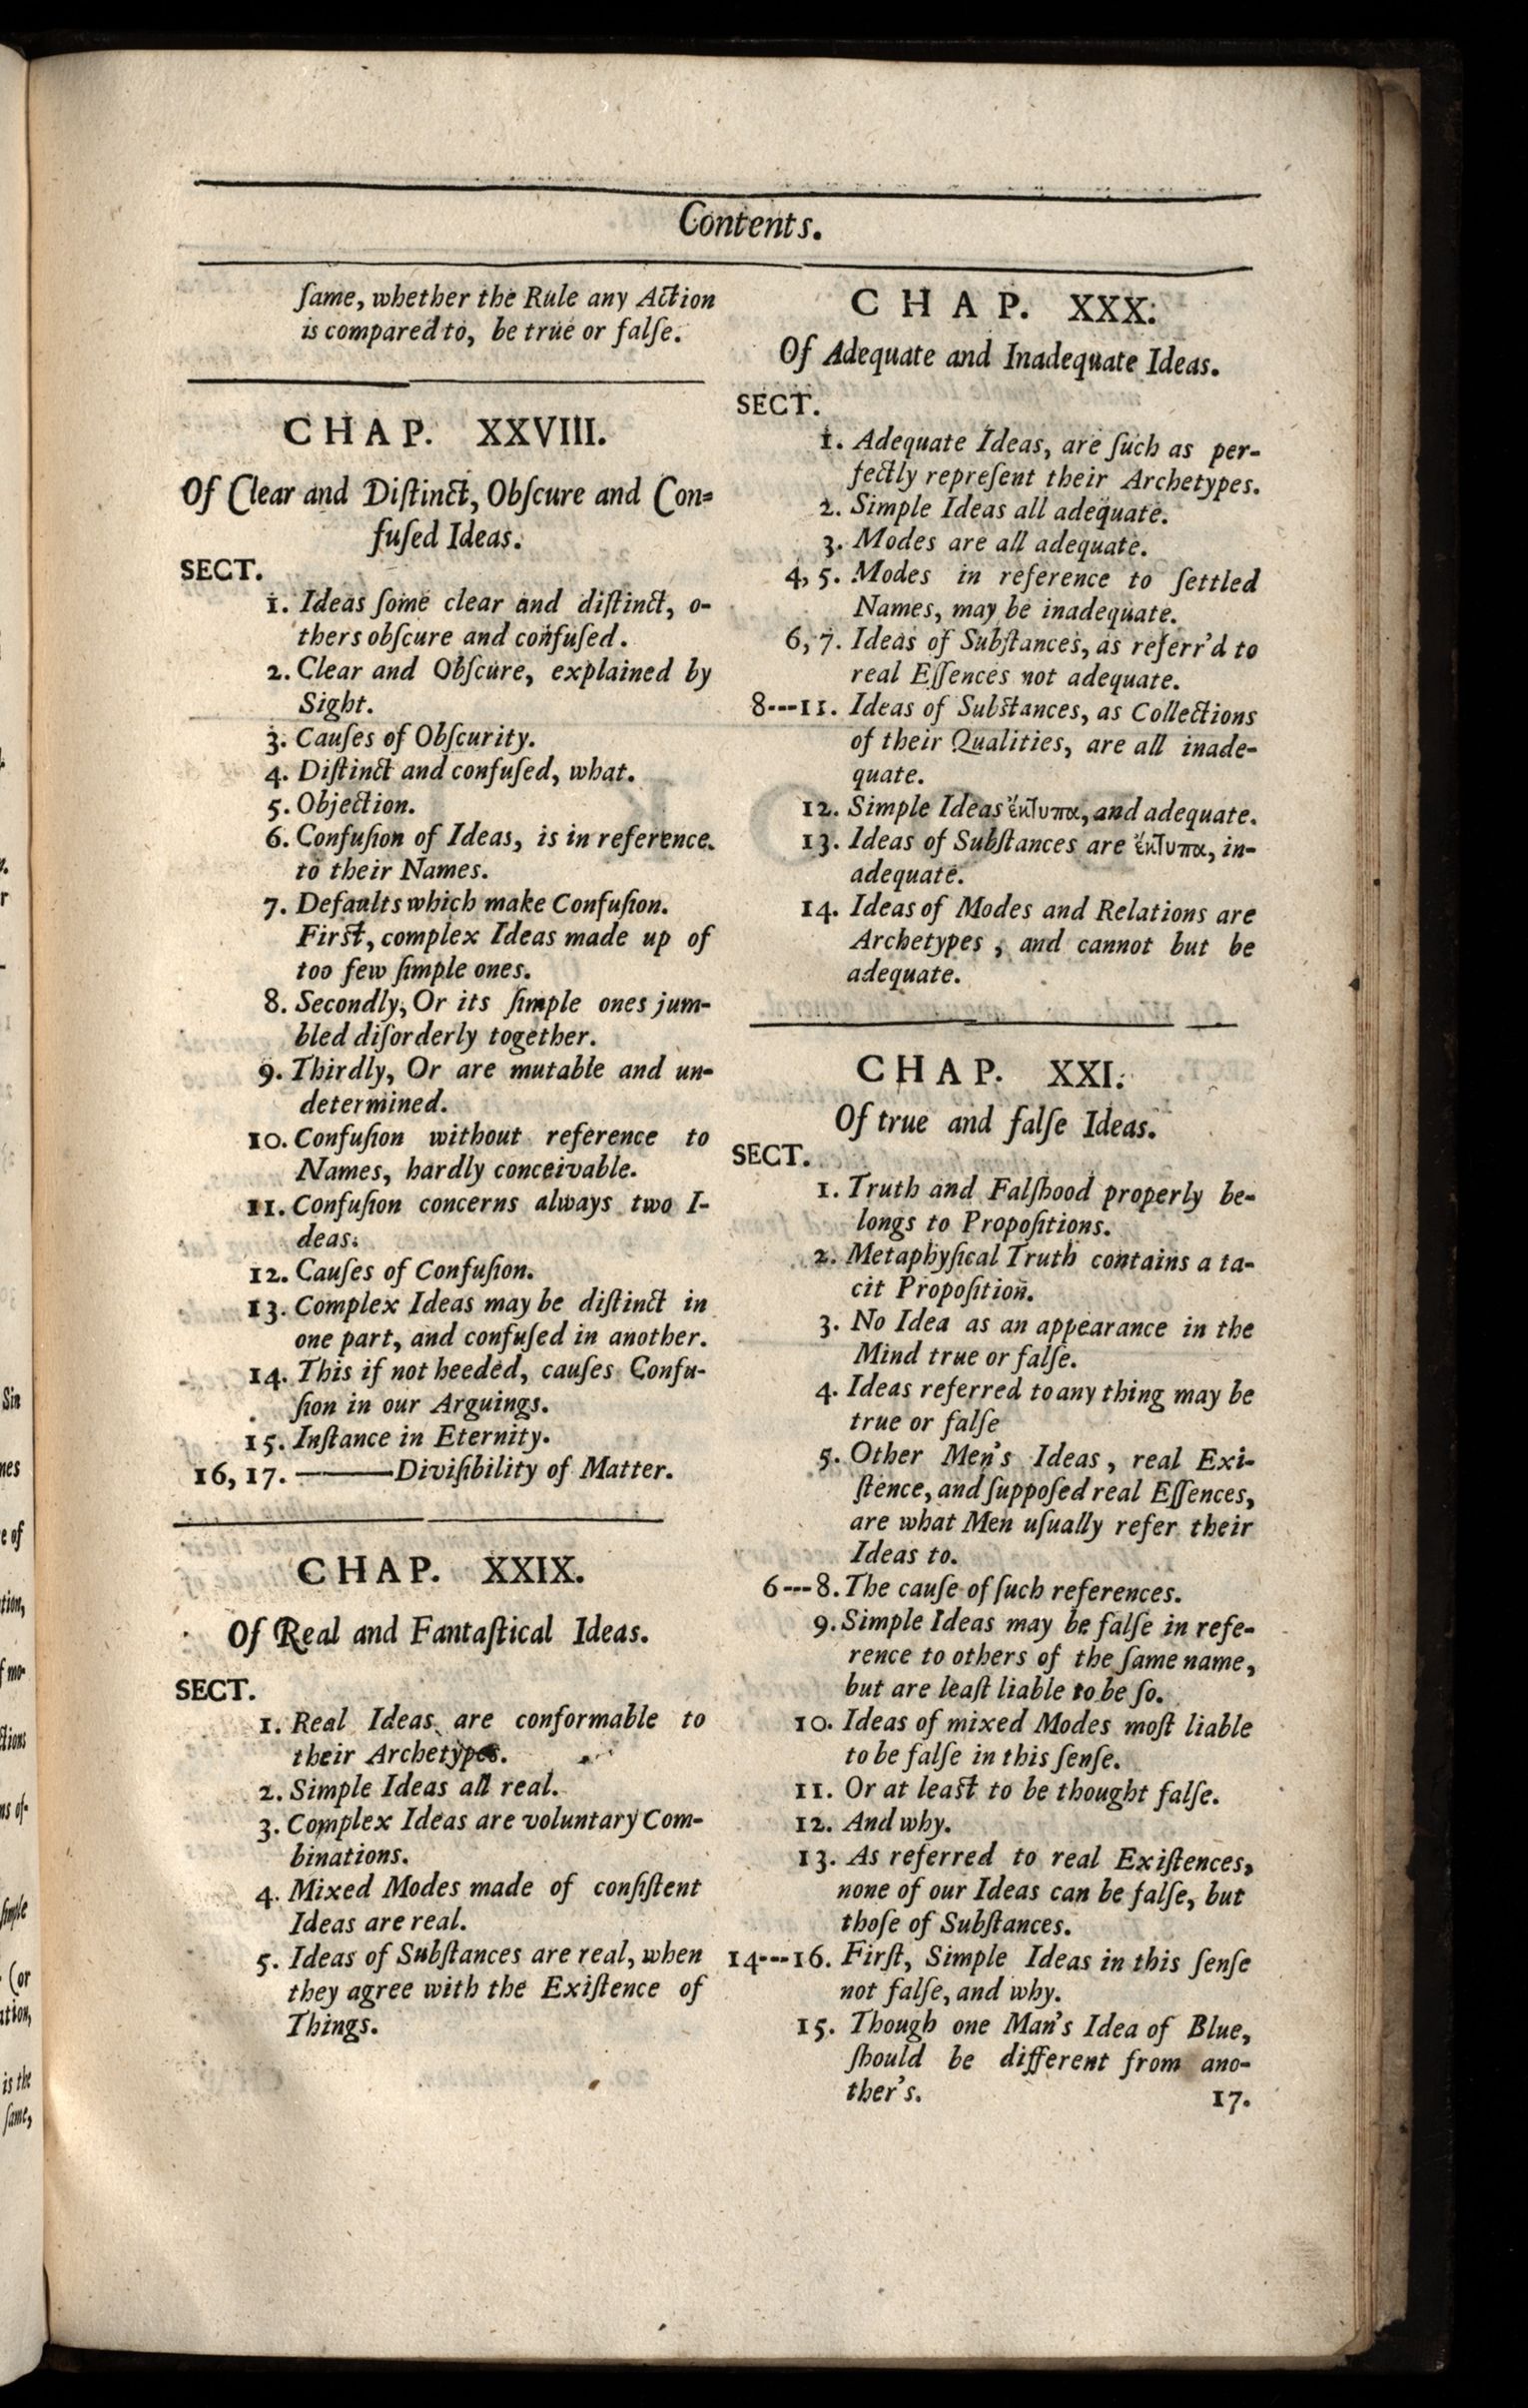 Contents.
ſame, whether the Rule any Action
is compared to, be true or falſe.
CHAP. XXVIII.
Of Clear and Diſtinct, Obſcure and Con-
fuſed Ideas.
SECT.
1. Ideas ſome clear and diſtinct, o-
thers obſcure and confuſed.
2. Clear and Obſcure, explained by
Sight.
3. Cauſes of Obſcurity.
4. Diſtinct and confuſed, what.
5. Objection.
6. Confuſion of Ideas, is in reference
to their Names.
7. Defaults which make Confuſion.
Firſt, complex Ideas made up of
too few ſimple ones.
8. Secondly, Or its ſimple ones jum-
bled diſorderly together.
9. Thirdly, Or are mutable and un-
determined.
10. Confuſion without reference to
Names, hardly conceivable.
11. Confuſion concerns always two I-
deas.
12. Cauſes of Confuſion.
13. Complex Ideas may be diſtinct in
one part, and confuſed in another.
14. This if not heeded, cauſes Confu-
ſion in our Arguings.
15. Inſtance in Eternity.
16, 17. ———Diviſibility of Matter.
CHAP. XXIX.
Of Real and Fantaſtical Ideas.
SECT.
1. Real Ideas are conformable to
their Archetypes.
2. Simple Ideas all real.
3. Complex Ideas are voluntary Com-
binations.
4. Mixed Modes made of conſiſtent
Ideas are real.
5. Ideas of Subſtances are real, when
they agree with the Exiſtence of
Things.
CHAP. XXX.
Of Adequate and Inadequate Ideas.
SECT.
1. Adequate Ideas, are ſuch as per-
fectly repreſent their Archetypes.
2. Simple Ideas all adequate.
3. Modes are all adequate.
4, 5. Modes in reference to ſettled
Names, may be inadequate.
6, 7. Ideas of Subſtances, as referr'd to
real Eſſences not adequate.
8---11. Ideas of Subſtances, as Collections
of their Qualities, are all inade-
quate.
12. Simple Ideas ἔκτυπα, and adequate.
13. Ideas of Subſtances are ἔκτυπα, in-
adequate.
14. Ideas of Modes and Relations are
Archetypes, and cannot but be
adequate.
CHAP. XXI.
Of true and falſe Ideas.
SECT.
1. Truth and Falſhood properly be-
longs to Propoſitions.
2. Metaphyſical Truth contains a ta-
cit Propoſition.
3. No Idea as an appearance in the
Mind true or falſe.
4. Ideas referred to any thing may be
true or falſe
5. Other Men's Ideas, real Exi-
ſtence, and ſuppoſed real Eſſences,
are what Men uſually refer their
Ideas to.
6---8. The cauſe of ſuch references.
9. Simple Ideas may be falſe in refe-
rence to others of the ſame name,
but are leaſt liable to be ſo.
10. Ideas of mixed Modes moſt liable
to be falſe in this ſenſe.
11. Or at leaſt to be thought falſe.
12. And why.
13. As referred to real Exiſtences,
none of our Ideas can be falſe, but
thoſe of Subſtances.
14---16. Firſt, Simple Ideas in this ſenſe
not falſe, and why.
15. Though one Man's Idea of Blue,
ſhould be different from ano-
ther's. 17.